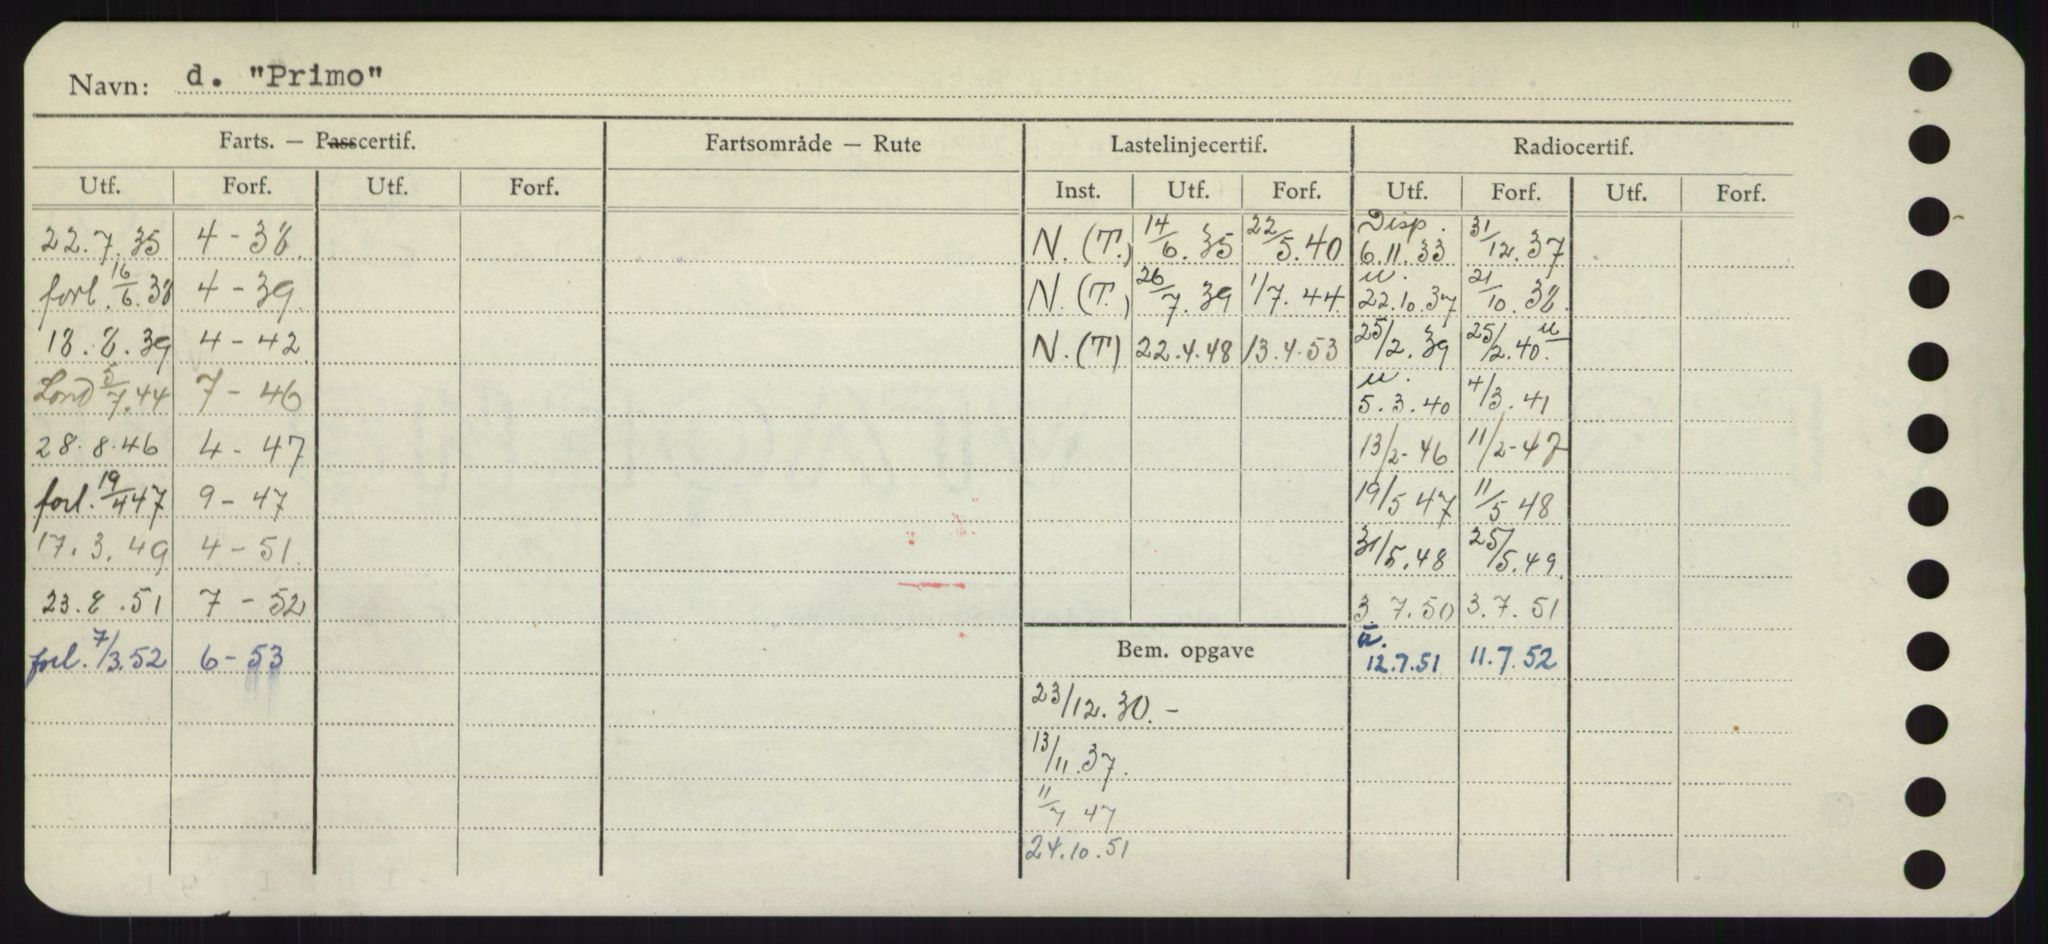 Navn: d. "Primo"
Farts. — Passcertif. Fartsområde — Rute Lastelinjecertif. Radiocertif.
Utf. Forf. Utf. Forf. Inst. Utf. Forf. Utf. Forf. Utf. Forf.
22.7.35 4 - 38. N. (T.) 14/6.35 22/5.40 Disp. 6.11.33 31/12.37
forl. 16/6.38 4 - 39. N. (T.) 26/7.39 1/7.44 u. 22.10.37 21/10.38.
18.8.39 4 - 42 N. (T) 22.4.48 13.4.53 25/2.39 25/2.40. u
Lond 5/7.44 7 - 46 u. 5.3.40 4/3.41
28.8.46 4 - 47 13/2-46 11/2-47
forl. 19/4 47 9 - 47 19/5 47 11/5 48
17.3.49 4 - 51. 31/5.48 25/5.49
23.8.51 7 - 52 3.7.50 3.7.51
forl. 7/3.52 6 - 53 Bem. opgave u. 12.7.51 11.7.52
23/12.30.-
13/11.37.
11/7 47
24.10.51